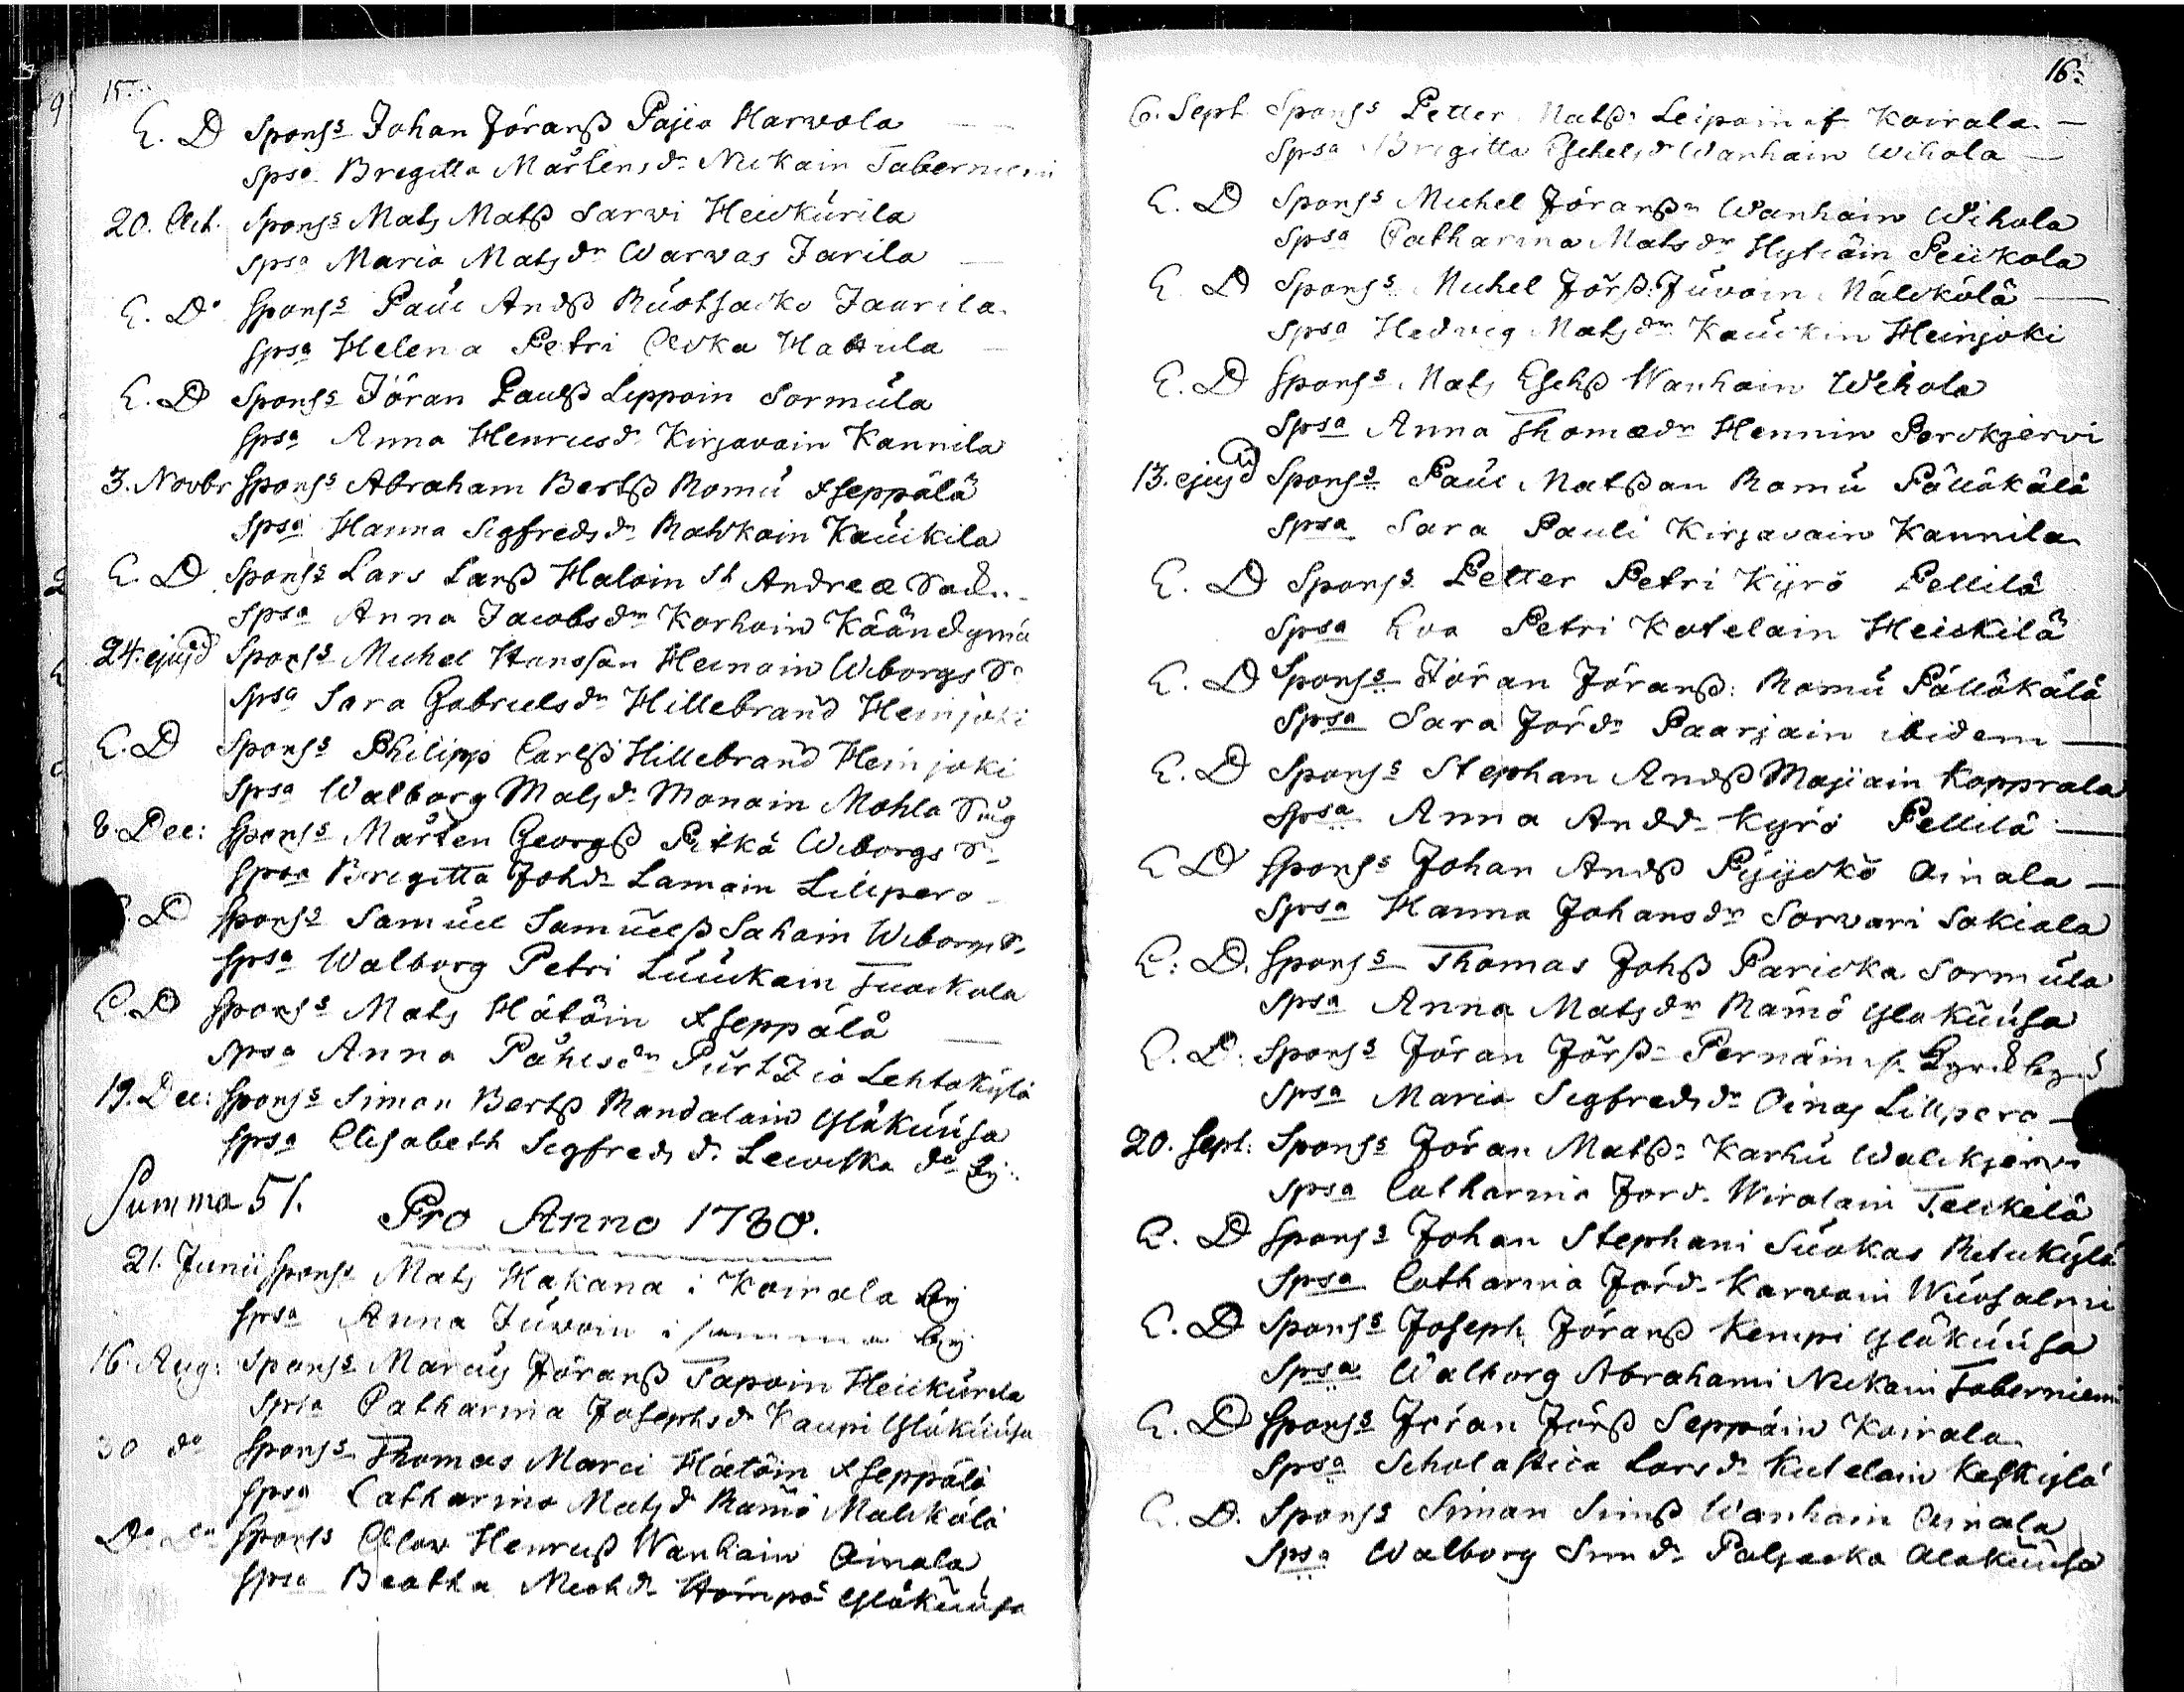 15.
E. D Spons:s Johan Jöranß Pajio Harvola
Sps:a Bregitta Mårtens d:r Nickain Taberniemi
20. Oct. Spons:s Mats Matß Sarvi Heickurila
Sps:a Maria Mats d:r Warvas Jarila
E. D:o Spons:s Paul Andß Ruotsacko Jaarila
Sps:a Helena Petri Ocka Hattula
E. D Spons:s Jöran Paulß Leppain Sormula
Sps:a Anna Henricsd: Kirjavain Kannila
3. Novbr Spons:s Abraham Bertß Romu Yseppälä
Sps:a Hanna Sigfreds d:r Rahkain Kauckila
E. D Spons:s Lars Larß Haloin St Andreæ
Sps:a Anna Jacobs d:r Korhoin Käändymä
24. ejusd Spons:s Michel Hansson Heinoin Wiborgs S:
Sps:a Sara Gabriels d:r Hillebrand Heinjoki
E. D Spons:s Philipp Carlß Hillebrand Heinjoki
Sps:a Walborg Mats d:r Monoin Mohla
8. Dec: Spons:s Mårten Georgß Pitkä Wiborgs S:
Sps:a Bregitta Joh d: Lamain Lilipero
D Spons:s Samuel Samuelß Sahain Wiborgs S:
Sps:a Walborg Petri Luukain Tuockola
E. D Spons:s Mats Hätöin Yseppälä
Sps:a Anna Påhls d:r Purtzio Lehtokylä
19. Dec: Spons:s Simon Bertß Randalain Yläkuusa
Sps:a Elisabeth Sigfreds d: d:o by
Summa 51.
Pro Anno 1730.
21. Junii Spons:s Mats Hakana i Koirala by
Sps:a Anna Juvoin i samma by
16. Aug: Spons:s Marcus Jöranß Tapoin Heickurila
Sps:a Catharina Josephs d: Kaupi Yläkuusa
30 d:o Spons:s Thomas Marci Hätöin Yseppälä
Sps:a Catharina Mats d: Rämö Mälckälä
D:o Spons:s Olov Henricß Wanhain Ainala
Sps:a Beatha Mich d: Hömpö Yläkuusa
16.
6. Sept. Spons:s Petter Matß: Leipain if Koirala
Sps:a Brigitta Eschels d:r Wanhain Wihola
E. D Spons:s Michel Jöranß:n Wanhain Wihola
Sps:a Catharina Mats d:r Hytiäin Peickola
E. D Spons:s Michel Jörß: Juvoin Mälckölä
Sps:a Hedvig Mats d:r Kauckin Heinjoki
E. D Spons:s Mats Eschß Wanhain Wihola
Sps:a Anna Thomæ d:r Hennin Perckjervi
13. ejusd Spons:s Paul Matßon Romu Pöllökälä
Sps:a Sara Pauli Kirjavain Kannila
E. D Spons:s Petter Petri Kyrö Pellilä
Sps:a Eva Petri Kotelain Heickilä
E. D Spons:s Jöran Jöranß: Romu Pöllökälä
Sps:a Sara Jör d:r Paarjain ibidem
E. D Spons:s Stephan Andß Majiain Kopprala
Sps:a Anna And d: Kyrö Pellilä
E D Spons:s Johan Andß Pyyckö Ainala
Sps:a Hanna Johans d:r Sorvari Sokiala
E: D. Spons:s Thomas Johß Paricka Sormula
Sps:a Anna Mats d:r Rämö Yläkuusa
E. D: Spons:s Jöran Jörß: Pernäin
Sps:a Maria Sigfreds d:r Oinas Lillpero
20. Sept: Spons:s Jöran Matß: Karhu Walckjervi
Sps:a Catharina Jör d: Wirolain Telckelä
E. D Spons:s Johan Stephani Suokas Ritukylä
Sps:a Catharina Jör d: Karvain Wuosalmi
E. D Spons:s Joseph Jöranß Kempi Yläkuusa
Sps:a Walborg Abrahami Nickain Taberniemi
E. D Spons:s Jöran Jörß Seppäin Koirala
Sps:a Scholastica Lars d: Kutelain Keskkylä
E. D. Spons:s Simon Simß Wanhain Ainala
Sps:a Walborg Sim d: Paljacka Alakuusa